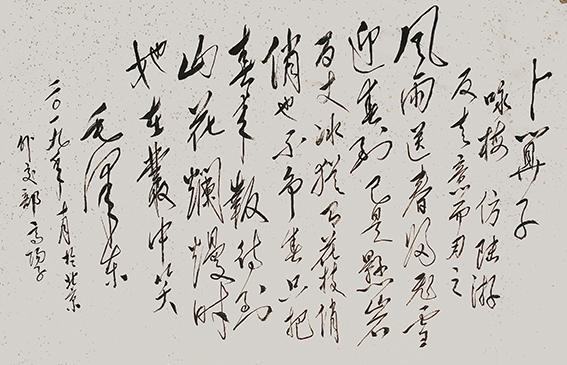 卜算子
咏梅 仿陆游
反其意而用之
风雨送春归飞雪
迎春到已是悬岩
百丈冰犹有花枝俏
俏也不争春只把
春来报待到
山花烂熳时
她在丛中笑
毛泽东
二〇一九年十月于北京
外交部